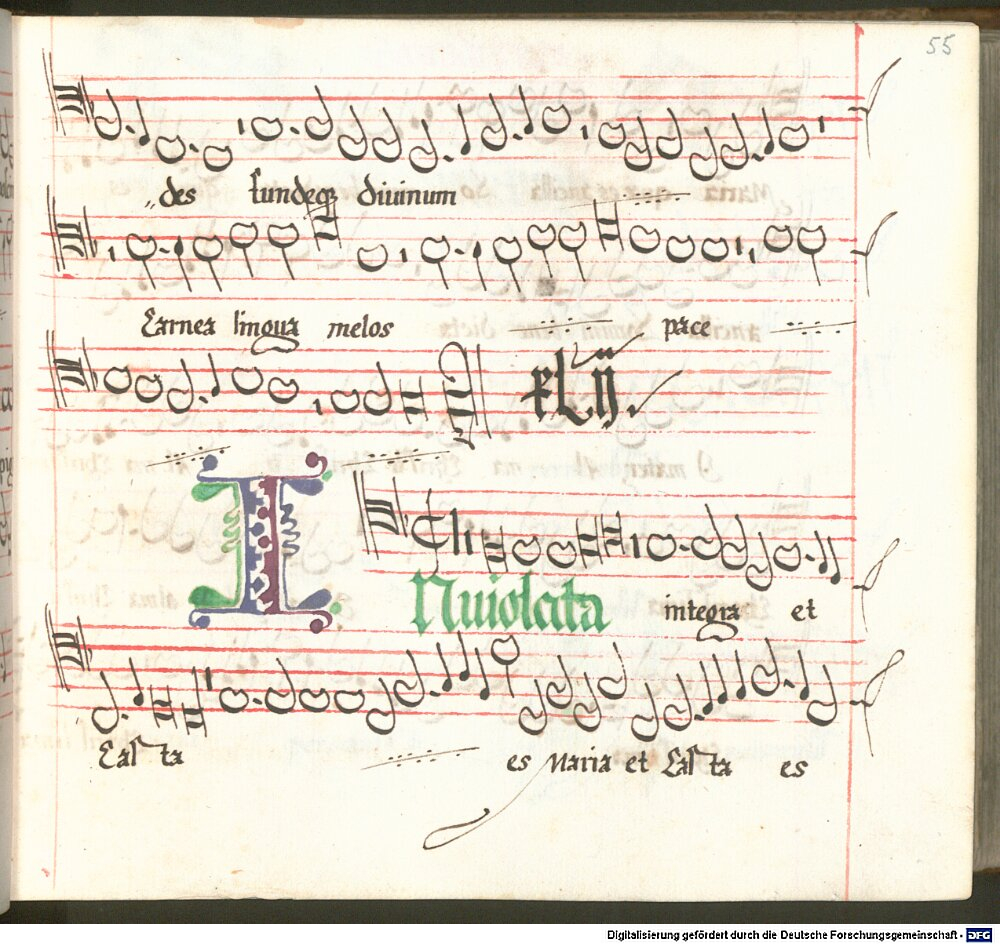 55
des fundeq; diuinum
Carnea lingua melos pace
Nuiolata integra et
Cas ta es Maria et Cas ta es
Digitalisierung gefördert durch die Deutsche Forschungsgemeinschaft - DFG